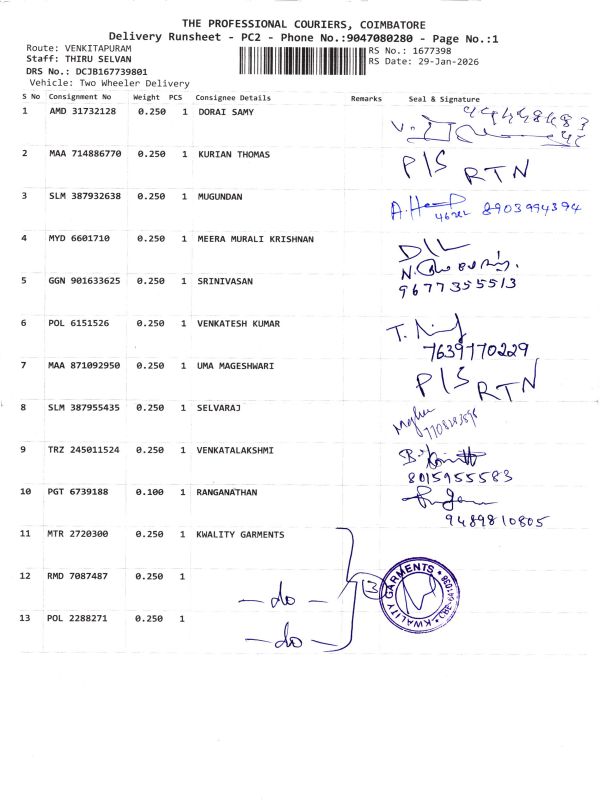 THE PROFESSIONAL COURIERS, COIMBATORE
Delivery Runsheet - PC2 - Phone No.:9047080280 - Page No.:1
Route: VENKITAPURAM
RS No.: 1677398
Staff: THIRU SELVAN
RS Date: 29-Jan-2026
DRS No.: DCJB167739801
Vehicle: Two Wheeler Delivery
S No Consignment No Weight PCS Consignee Details Remarks Seal & Signature
1 AMD 31732128 0.250 1 DORAI SAMY
2 MAA 714886770 0.250 1 KURIAN THOMAS P/S RTN
3 SLM 387932638 0.250 1 MUGUNDAN 8903994394
4 MYD 6601710 0.250 1 MEERA MURALI KRISHNAN D/L
5 GGN 901633625 0.250 1 SRINIVASAN 9677355513
6 POL 6151526 0.250 1 VENKATESH KUMAR
7639770229
7 MAA 871092950 0.250 1 UMA MAGESHWARI P/S RTN
8 SLM 387955435 0.250 1 SELVARAJ
9 TRZ 245011524 0.250 1 VENKATALAKSHMI
8015955583
10 PGT 6739188 0.100 1 RANGANATHAN
9489810805
11 MTR 2720300 0.250 1 KWALITY GARMENTS
12 RMD 7087487 0.250 1 — do — 13 KWALITY GARMENTS
13 POL 2288271 0.250 1 — do —